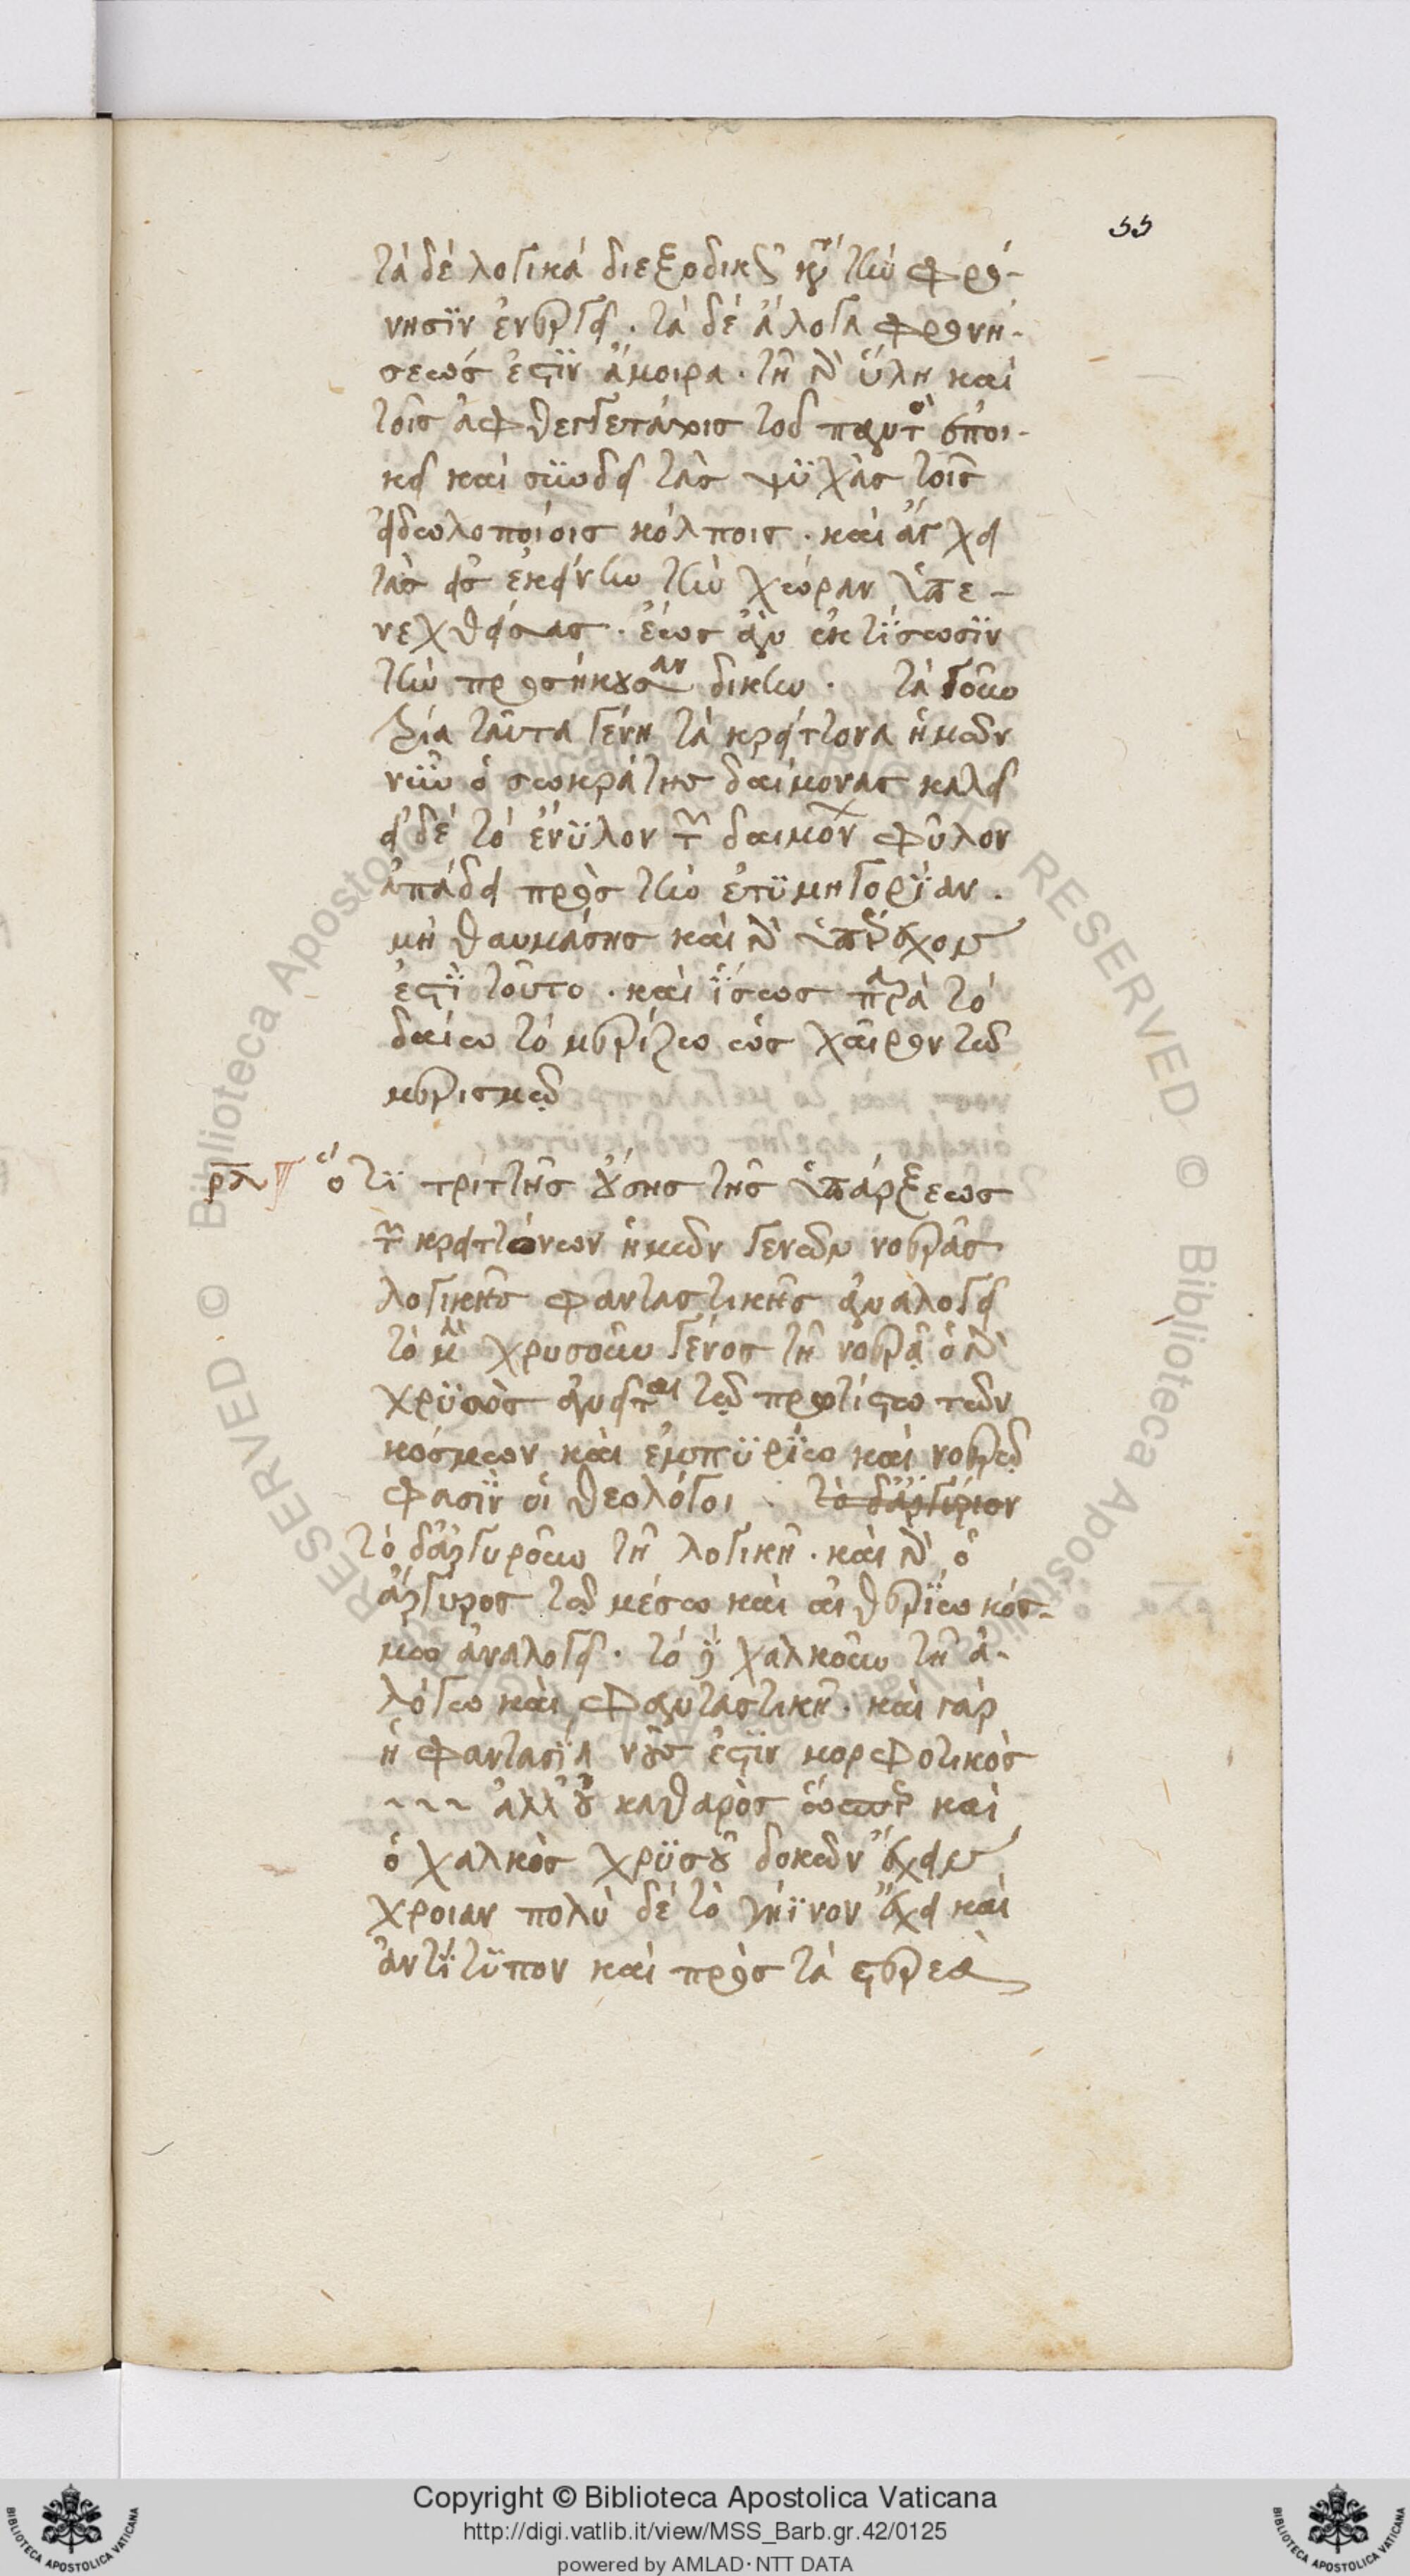 55
τὰ δὲ λογικὰ διεξοδικῶς κατὰ τὴν φρό-
νησϊν ἐνεργεῖ. τὰ δὲ ἄλογα φρονή-
σεώς ἐστϊν ἄμοιρα. τῆ δὲ ὕλη καὶ
τοῖς
κεῖ καὶ συνδεῖ τὰς ψϋχὰς τοῖς
εἰδωλοποιοῖς κόλποις. καὶ ἄγχει
τὰς εἰς ἐκείνην τὴν χώραν ὑπε-
νεχθείσας. ἕως ἂν ἐκτϊσωσϊν
τὴν προσήκουσαν δίκην. τὰ γοῦν
τρία ταῦτα γένη τὰ κρείττονα ἡμῶν
νῦν ὁ σωκράτης δαίμονας καλεῖ
εἰ δὲ τὸ ἔνϋλον τῶν δαιμόνων φῦλον
ἀπάδει πρὸς τὴν ἐτϋμηγορϊαν.
μὴ θαυμάσης καὶ δὲ ὕπερ ἔχομεν
ἐστϊ τοῦτο. καὶ ἴσως παρὰ τὸ
δαίω τὸ μερίζω ὡς χαῖρον τῶ
μερισμῶ
ρλ ὅτϊ τριττῆς οὔσης τῆς ὑπάρξεως
τῶν κρειττόνων ἡμῶν γενῶν νοερᾶς
λογικῆς φανταστικῆς ἀναλογεῖ
τὸ μὲν χρυσοῦν γένος τῆ νοερᾶ ὁ δὲ
χρϋσὸς ἀνεῖται τῶ πρωτίστω τῶν
κόσμων καὶ ἐμπϋρϊω καὶ νοερῶ
φασϊν οἱ θεολόγοι. τὸ δἀργύριον
τὸ δἀργυροῦν τῆ λογικῆ. καὶ δὲ ὁ
ἄργυρος τῶ μέσω καὶ αἰθερϊω κόσ-
μω ἀναλογεῖ. τὸ δὲ χαλκοῦν τῆ ἀ-
λόγω καὶ φανταστικῆ. καὶ γὰρ
ἡ φαντασϊα νοῦς ἐστϊν μορφοτικὸς
~~~ ἀλλ' οὐ καθαρὸς ὥσπερ καὶ
ὁ χαλκὸς χρϋσοῦ δοκῶν ἔχειν
χροιαν πολὺ δὲ τὸ γήϊνον ἔχει καὶ
ἀντϊτϋπον καὶ πρὸς τὰ στερεὰ
Copyright © Biblioteca Apostolica Vaticana
http://digi.vatlib.it/view/MSS_Barb.gr.42/0125
powered by AMLAD·NTT DATA